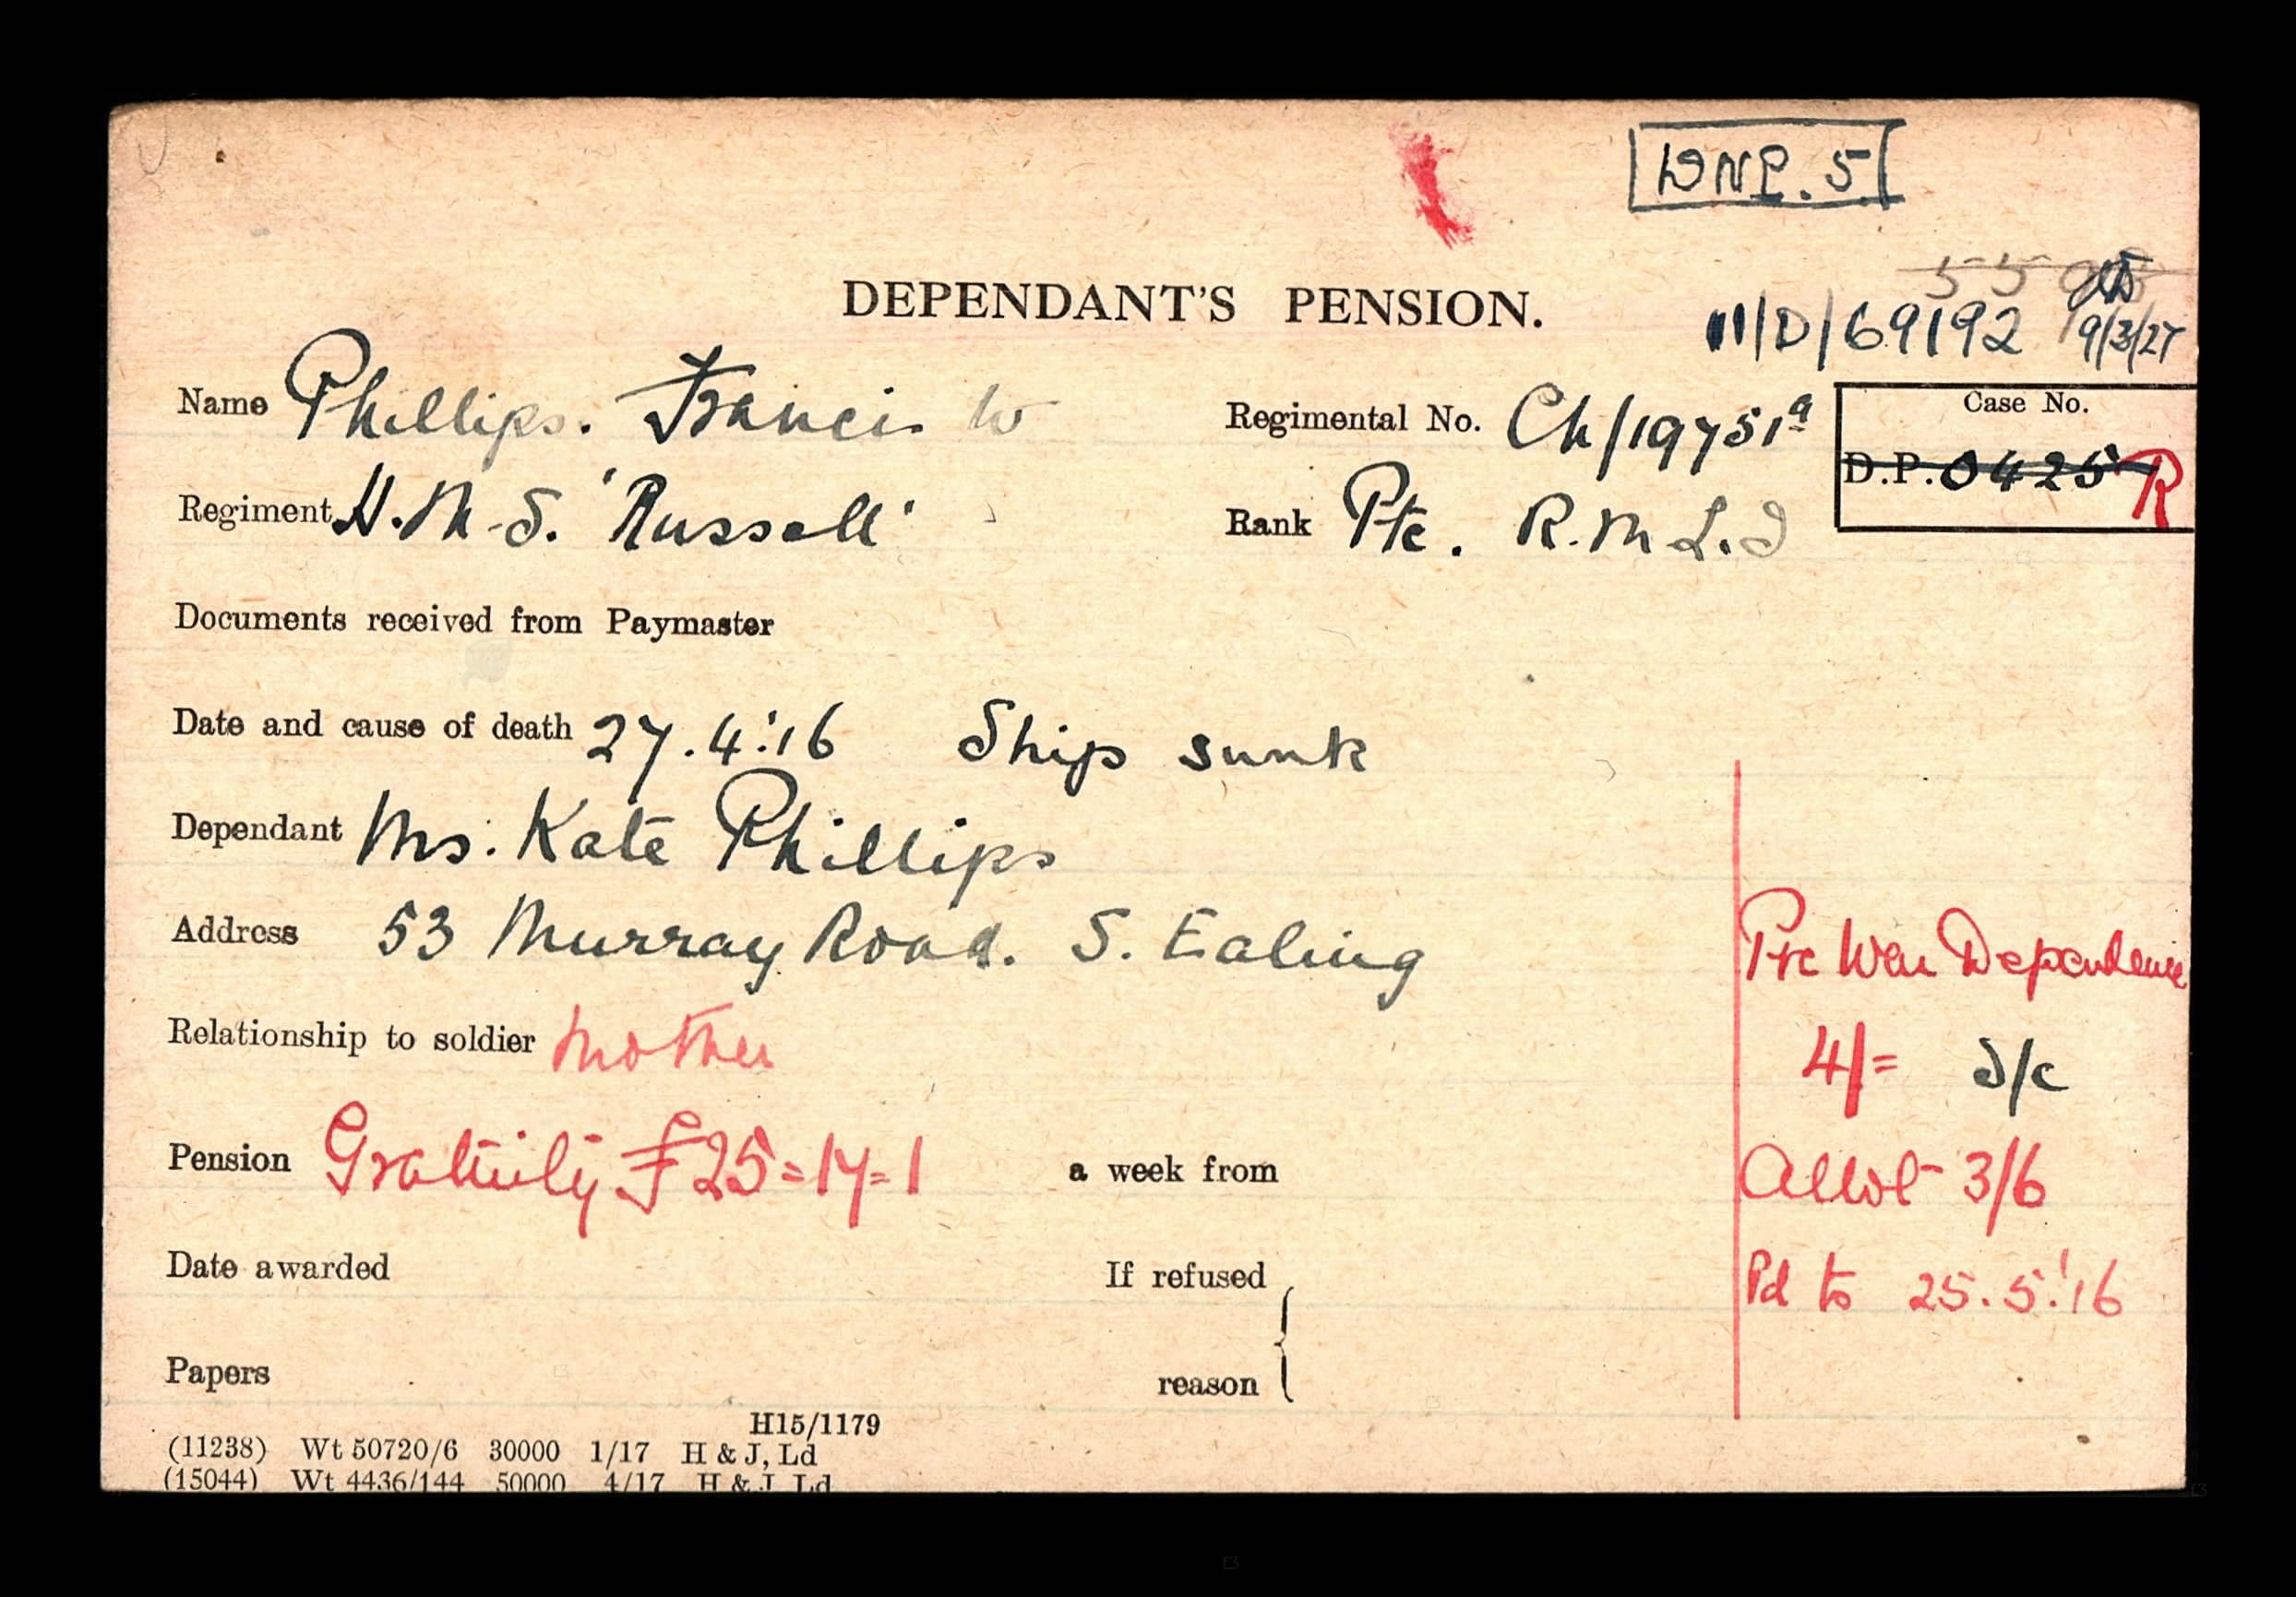 DNP. 5
DEPENDANT'S PENSION.
III/D/69192 9/3/27
Name Phillips. Francis W Regimental No. Ch/19751ª
Case No.
D.P. 0425 R
Regiment H.M.S. 'Russell' Rank Pte. R.M.L.I
Documents received from Paymaster
Date and cause of death 27.4.'16 Ship sunk
Dependant Mrs. Kate Phillips
Address 53 Murray Road. S. Ealing
Pre War Dependence
Relationship to soldier Mother
4/= S/c
Pension Gratuity £25=17=1 a week from
Allot 3/6
Date awarded If refused
Pd to 25.5.'16
Papers reason
H15/1179
(11238) Wt 50720/6 30000 1/17 H & J, Ld
(15044) Wt 4436/144 50000 4/17 H & J Ld